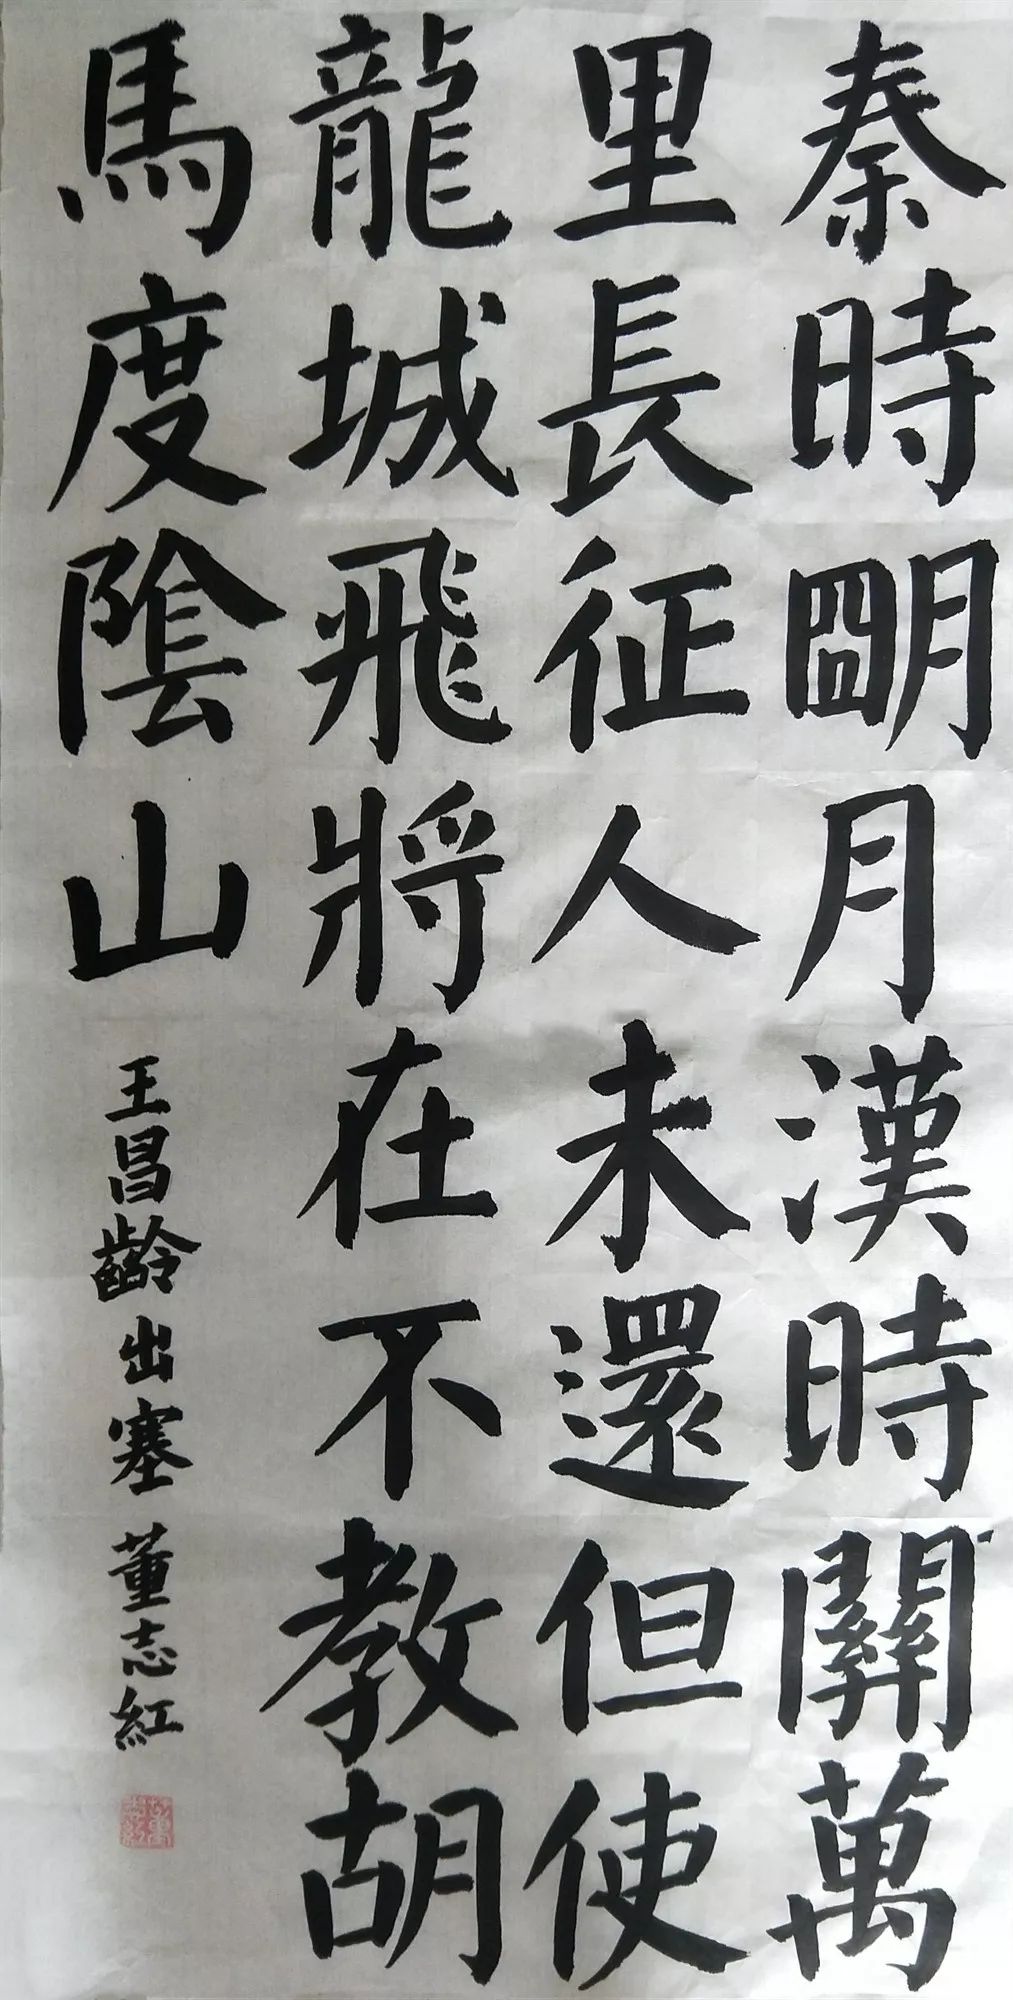 秦時朙月漢時關萬
里長征人未還但使
龍城飛將在不教胡
馬度陰山
王昌齡出塞 董志紅